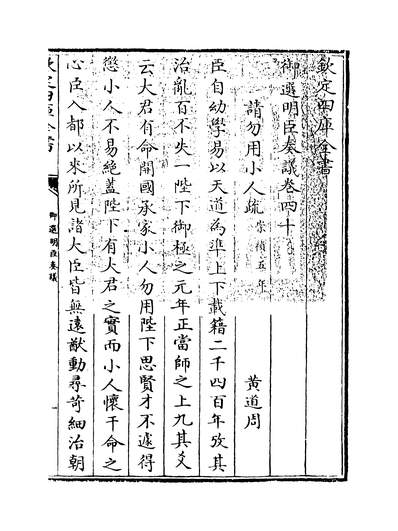 欽定四庫全書
御選明臣奏議卷四十
請勿用小人疏 崇禎五年
黃道周
臣自幼學易以天道為準上下載籍二千四百年攷其
治亂百不失一陛下御極之元年正當師之上九其爻
云大君有命開國承家小人勿用陛下思賢才不遽得
懲小人不易絶蓋陛下有大君之實而小人懷干命之
心臣入都以來所見諸大臣皆無遠猷動尋苛細治朝
欽定四庫全書
御選明臣奏議
一